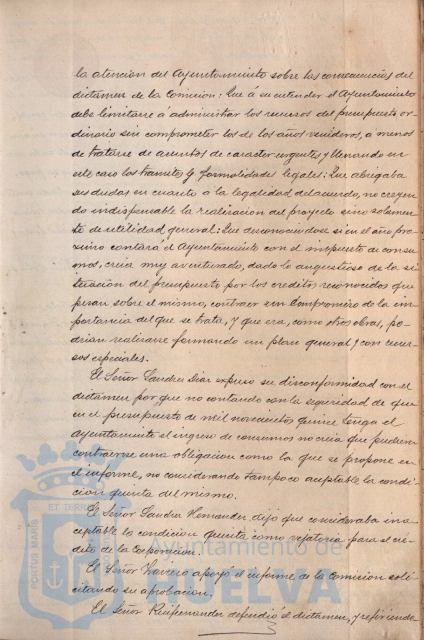 la atencion del Ayuntamiento sobre las consecuencias del
dictamen de la Comision: Que á su entender el Ayuntamiento
debe limitarse á administrar los recursos del presupuesto or-
dinario sin comprometer los de los años venideros, á menos
de tratarse de asuntos de caracter urgentes y llenando en
este caso los tramites y formalidades legales: Que abrigaba
sus dudas en cuanto á la legalidad del acuerdo, no creyen-
do indispensable la realizacion del proyecto sino solamen-
te de utilidad general: Que desconociendose si en el año pro-
ximo contará el Ayuntamiento con el impuesto de consu-
mos, creia muy aventurado, dado lo angustioso de la si-
tuacion del presupuesto por los creditos reconocidos que
pesan sobre el mismo, contraer un compromiso de la im-
portancia del que se trata, y que era, como otras obras, po-
drian realizarse formando un plan general y con recur-
sos especiales.
El Señor Sandra Diaz expuso su disconformidad con el
dictamen por que no contando con la seguridad de que
en el presupuesto de mil novecientos quince tenga el
Ayuntamiento el ingreso de consumos no creia que pudiera
contraerse una obligacion como la que se propone en
el informe, no considerando tampoco aceptable la condi-
cion quinta del mismo.
El Señor Sandra Hernandez dijo que consideraba ina-
ceptable la condicion quinta como vejatoria para el cré-
dito de la Corporacion.
El Señor apoyó el informe de la Comision soli-
citando su aprobacion.
El Señor defendió el dictamen, y refiriendo
PORTUS MARIS
ET TERRAE
Ayuntamiento de
HUELVA